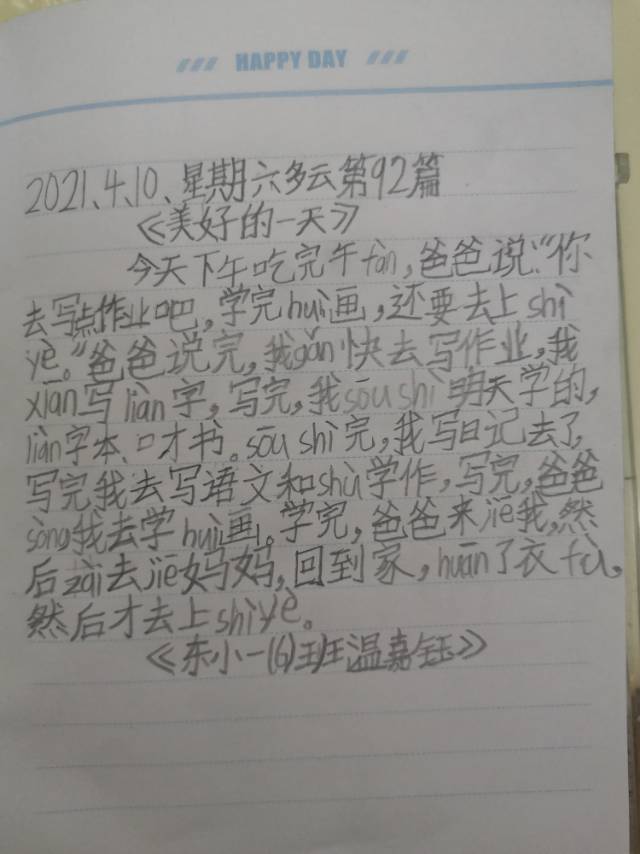 HAPPY DAY
2021、4、10、星期六多云第92篇
《美好的一天》
今天下午吃完午fàn,爸爸说:“你
去写点作业吧,学完huì画,还要去上shì
yè。”爸爸说完,我gǎn快去写作业,我
xiān写liàn字,写完,我sōu shì明天学的,
liàn字本、口才书。sōu shì完,我写日记去了
写完我去写语文和shù学作,写完,爸爸
sòng我去学huì画。学完,爸爸来jiē我,然
后zài去jiē妈妈,回到家,huān了衣fú,
然后才去上shì yè。
《东小一(6)班温嘉钰》